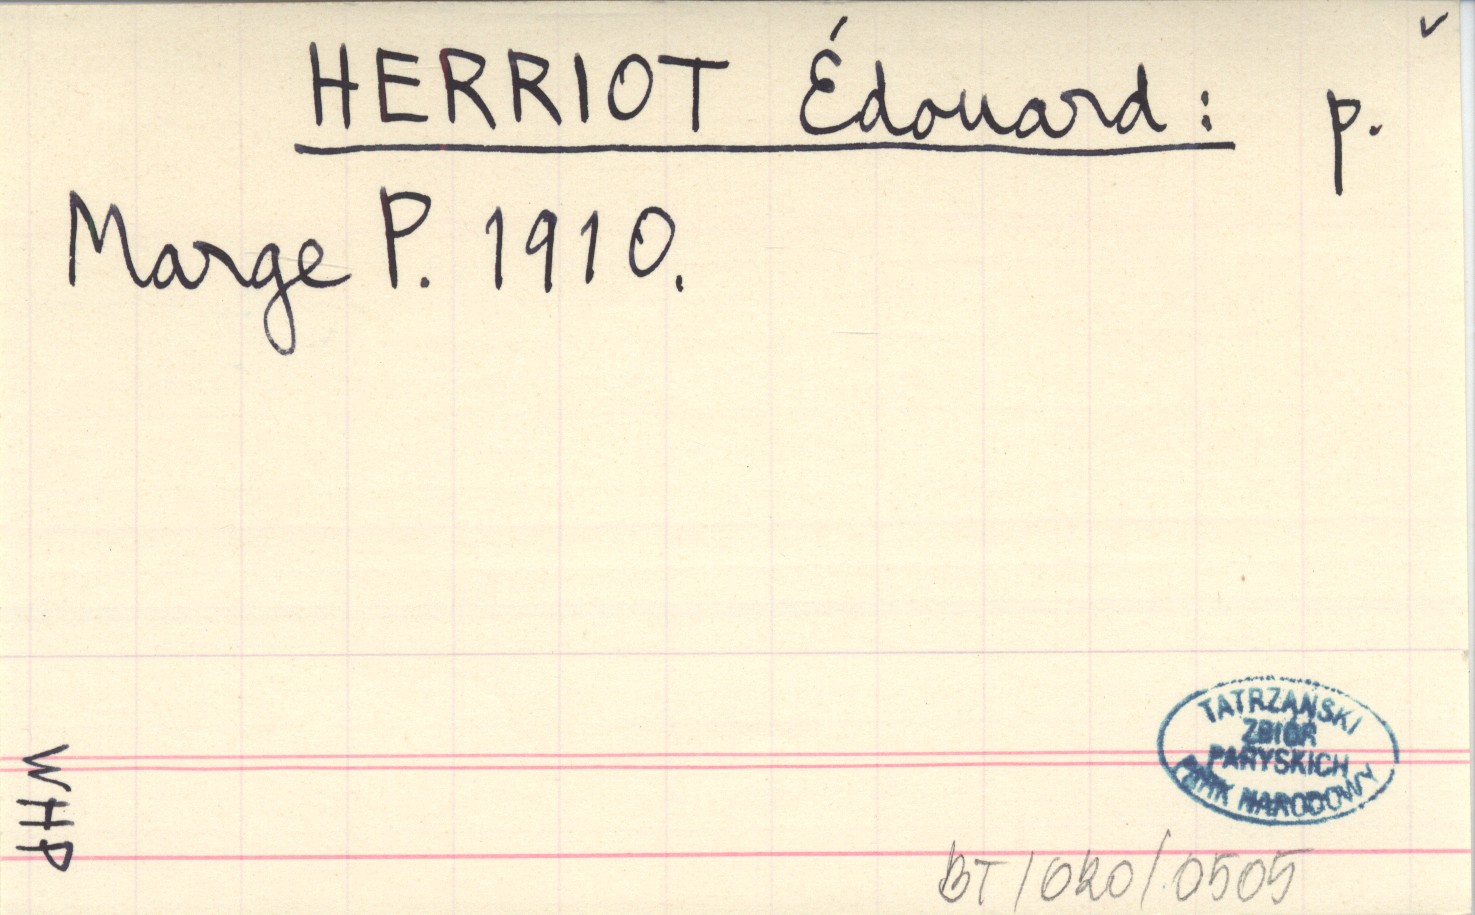 ✓
HERRIOT Édouard: p.
Marge P. 1910.
WHP
TATRZAŃSKI
ZBIÓR
PARYSKICH
PARK NARODOWY
BT/020/0505